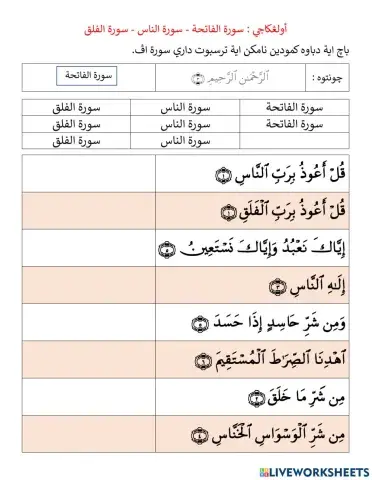 أولڠکاجي : سورة الفاتحة - سورة الناس - سورة الفلق
باچ اية دباوه کمودين نامکن اية ترسبوت داري سورة اڤ.
چونتوه : ٱلرَّحْمَٰنِ ٱلرَّحِيمِ ٣ سورة الفاتحة
سورة الفاتحة سورة الناس سورة الفلق
سورة الفاتحة سورة الناس سورة الفلق
سورة الناس سورة الفلق
قُلْ أَعُوذُ بِرَبِّ ٱلنَّاسِ ١
قُلْ أَعُوذُ بِرَبِّ ٱلْفَلَقِ ١
إِيَّاكَ نَعْبُدُ وَإِيَّاكَ نَسْتَعِينُ ٥
إِلَٰهِ ٱلنَّاسِ ٣
وَمِن شَرِّ حَاسِدٍ إِذَا حَسَدَ ٥
ٱهْدِنَا ٱلصِّرَٰطَ ٱلْمُسْتَقِيمَ ٦
مِن شَرِّ مَا خَلَقَ ٢
مِن شَرِّ ٱلْوَسْوَاسِ ٱلْخَنَّاسِ ٤
LIVEWORKSHEETS